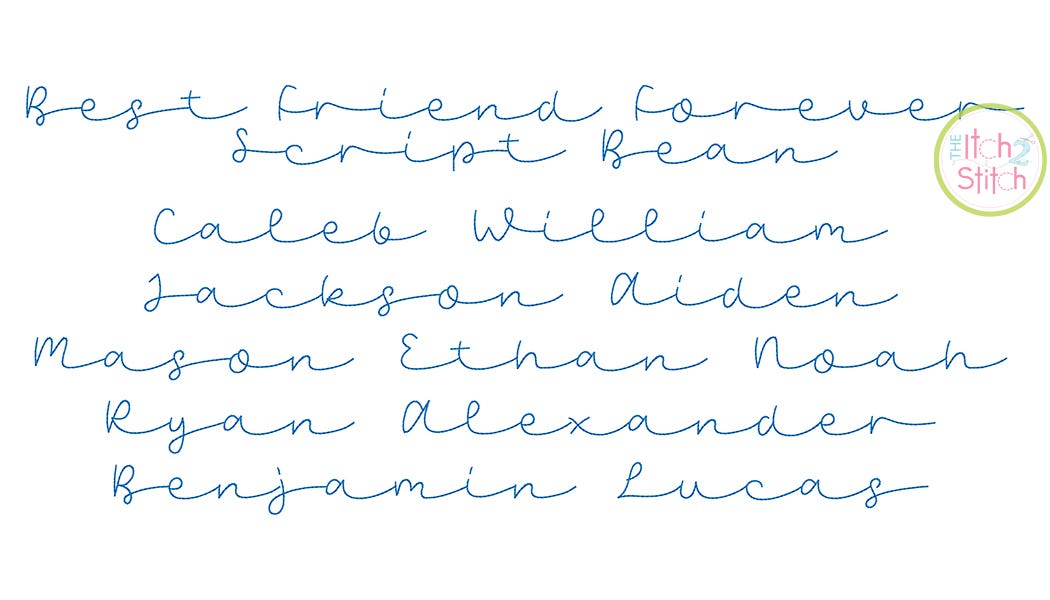 Best Friend Forever
Script Bean
THE
Itch 2
Stitch
Caleb William
Jackson Aiden
Mason Ethan Noah
Ryan Alexander
Benjamin Lucas